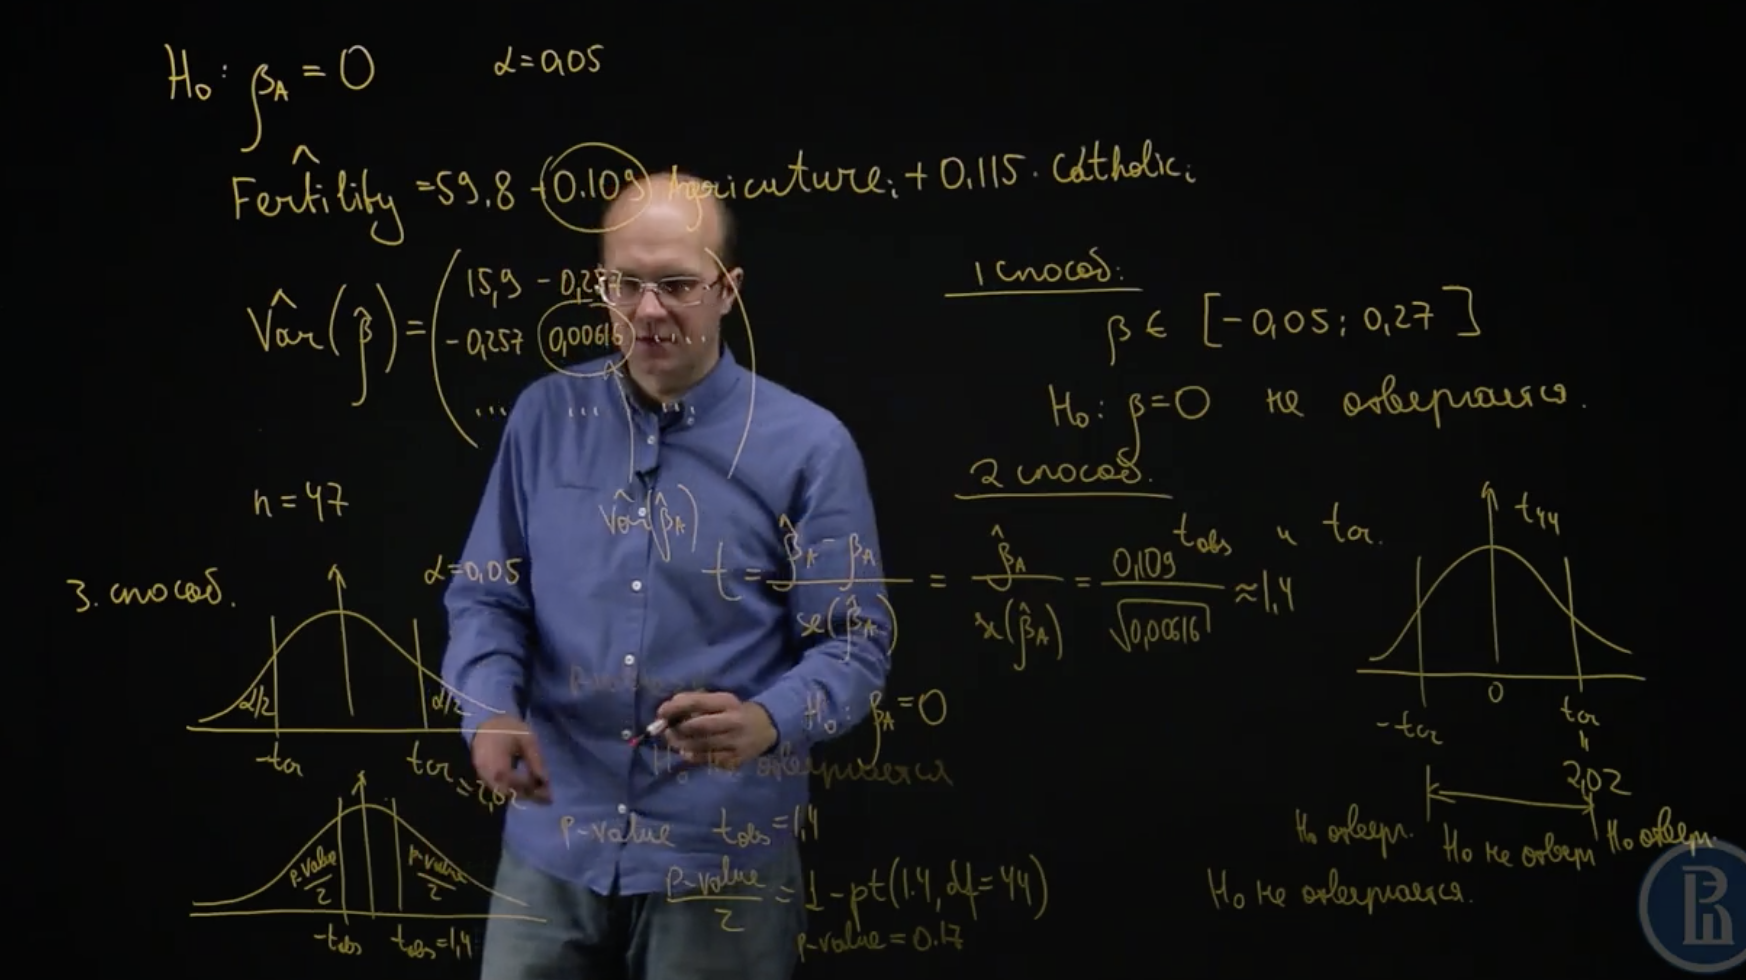 H₀: β_A = 0
α = 0,05
Fertilitŷ = 59.8 - 0.109 Agricuture_i + 0.115 · Catholic_i
V̂ar(β̂) = ( 15,9 - 0,257
- 0,257 0,00616 ...
... ... ... )
V̂ar(β̂_A)
n = 47
1 способ:
β ∈ [-0,05; 0,27]
H₀: β = 0 не отвергается.
2 способ.
t_obs и t_cr.
t = (β̂_A - β_A) / se(β̂_A) = β̂_A / se(β̂_A) = 0,109 / √0,00616 ≈ 1,4
t₄₄
-t_cr 0 t_cr
=
2,02
H₀ отверг. H₀ не отверг H₀ отверг.
H₀ не отвергается.
3. способ.
α = 0,05
α/2 α/2
-t_cr t_cr = 2,02
P-value
H₀: β_A = 0
H₀ не отвергается
P-value t_obs = 1,4
P-value/2 P-value/2
-t_obs t_obs = 1,4
P-value/2 = 1 - pt(1.4, df = 44)
P-value = 0.17